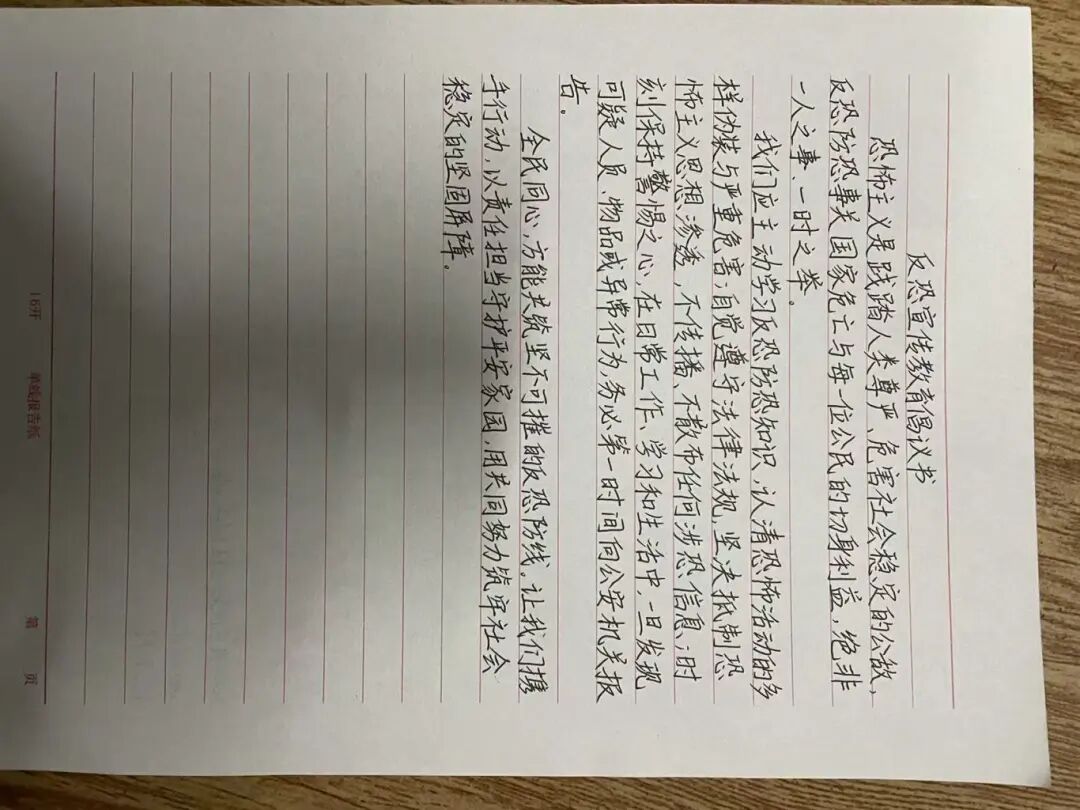 反恐宣传教育倡议书
恐怖主义是践踏人类尊严、危害社会稳定的公敌，
反恐防恐事关国家危亡与每一位公民的切身利益，绝非
一人之事、一时之举。
我们应主动学习反恐防恐知识，认清恐怖活动的多
样伪装与严重危害；自觉遵守法律法规，坚决抵制恐
怖主义思想渗透，不传播、不散布任何涉恐信息；时
刻保持警惕之心，在日常工作、学习和生活中，一旦发现
可疑人员、物品或异常行为，务必第一时间向公安机关报
告。
全民同心，方能共筑坚不可摧的反恐防线。让我们携
手行动，以责任担当守护平安家园，用共同努力筑牢社会
稳定的坚固屏障。
16开 单线报告纸 第 页